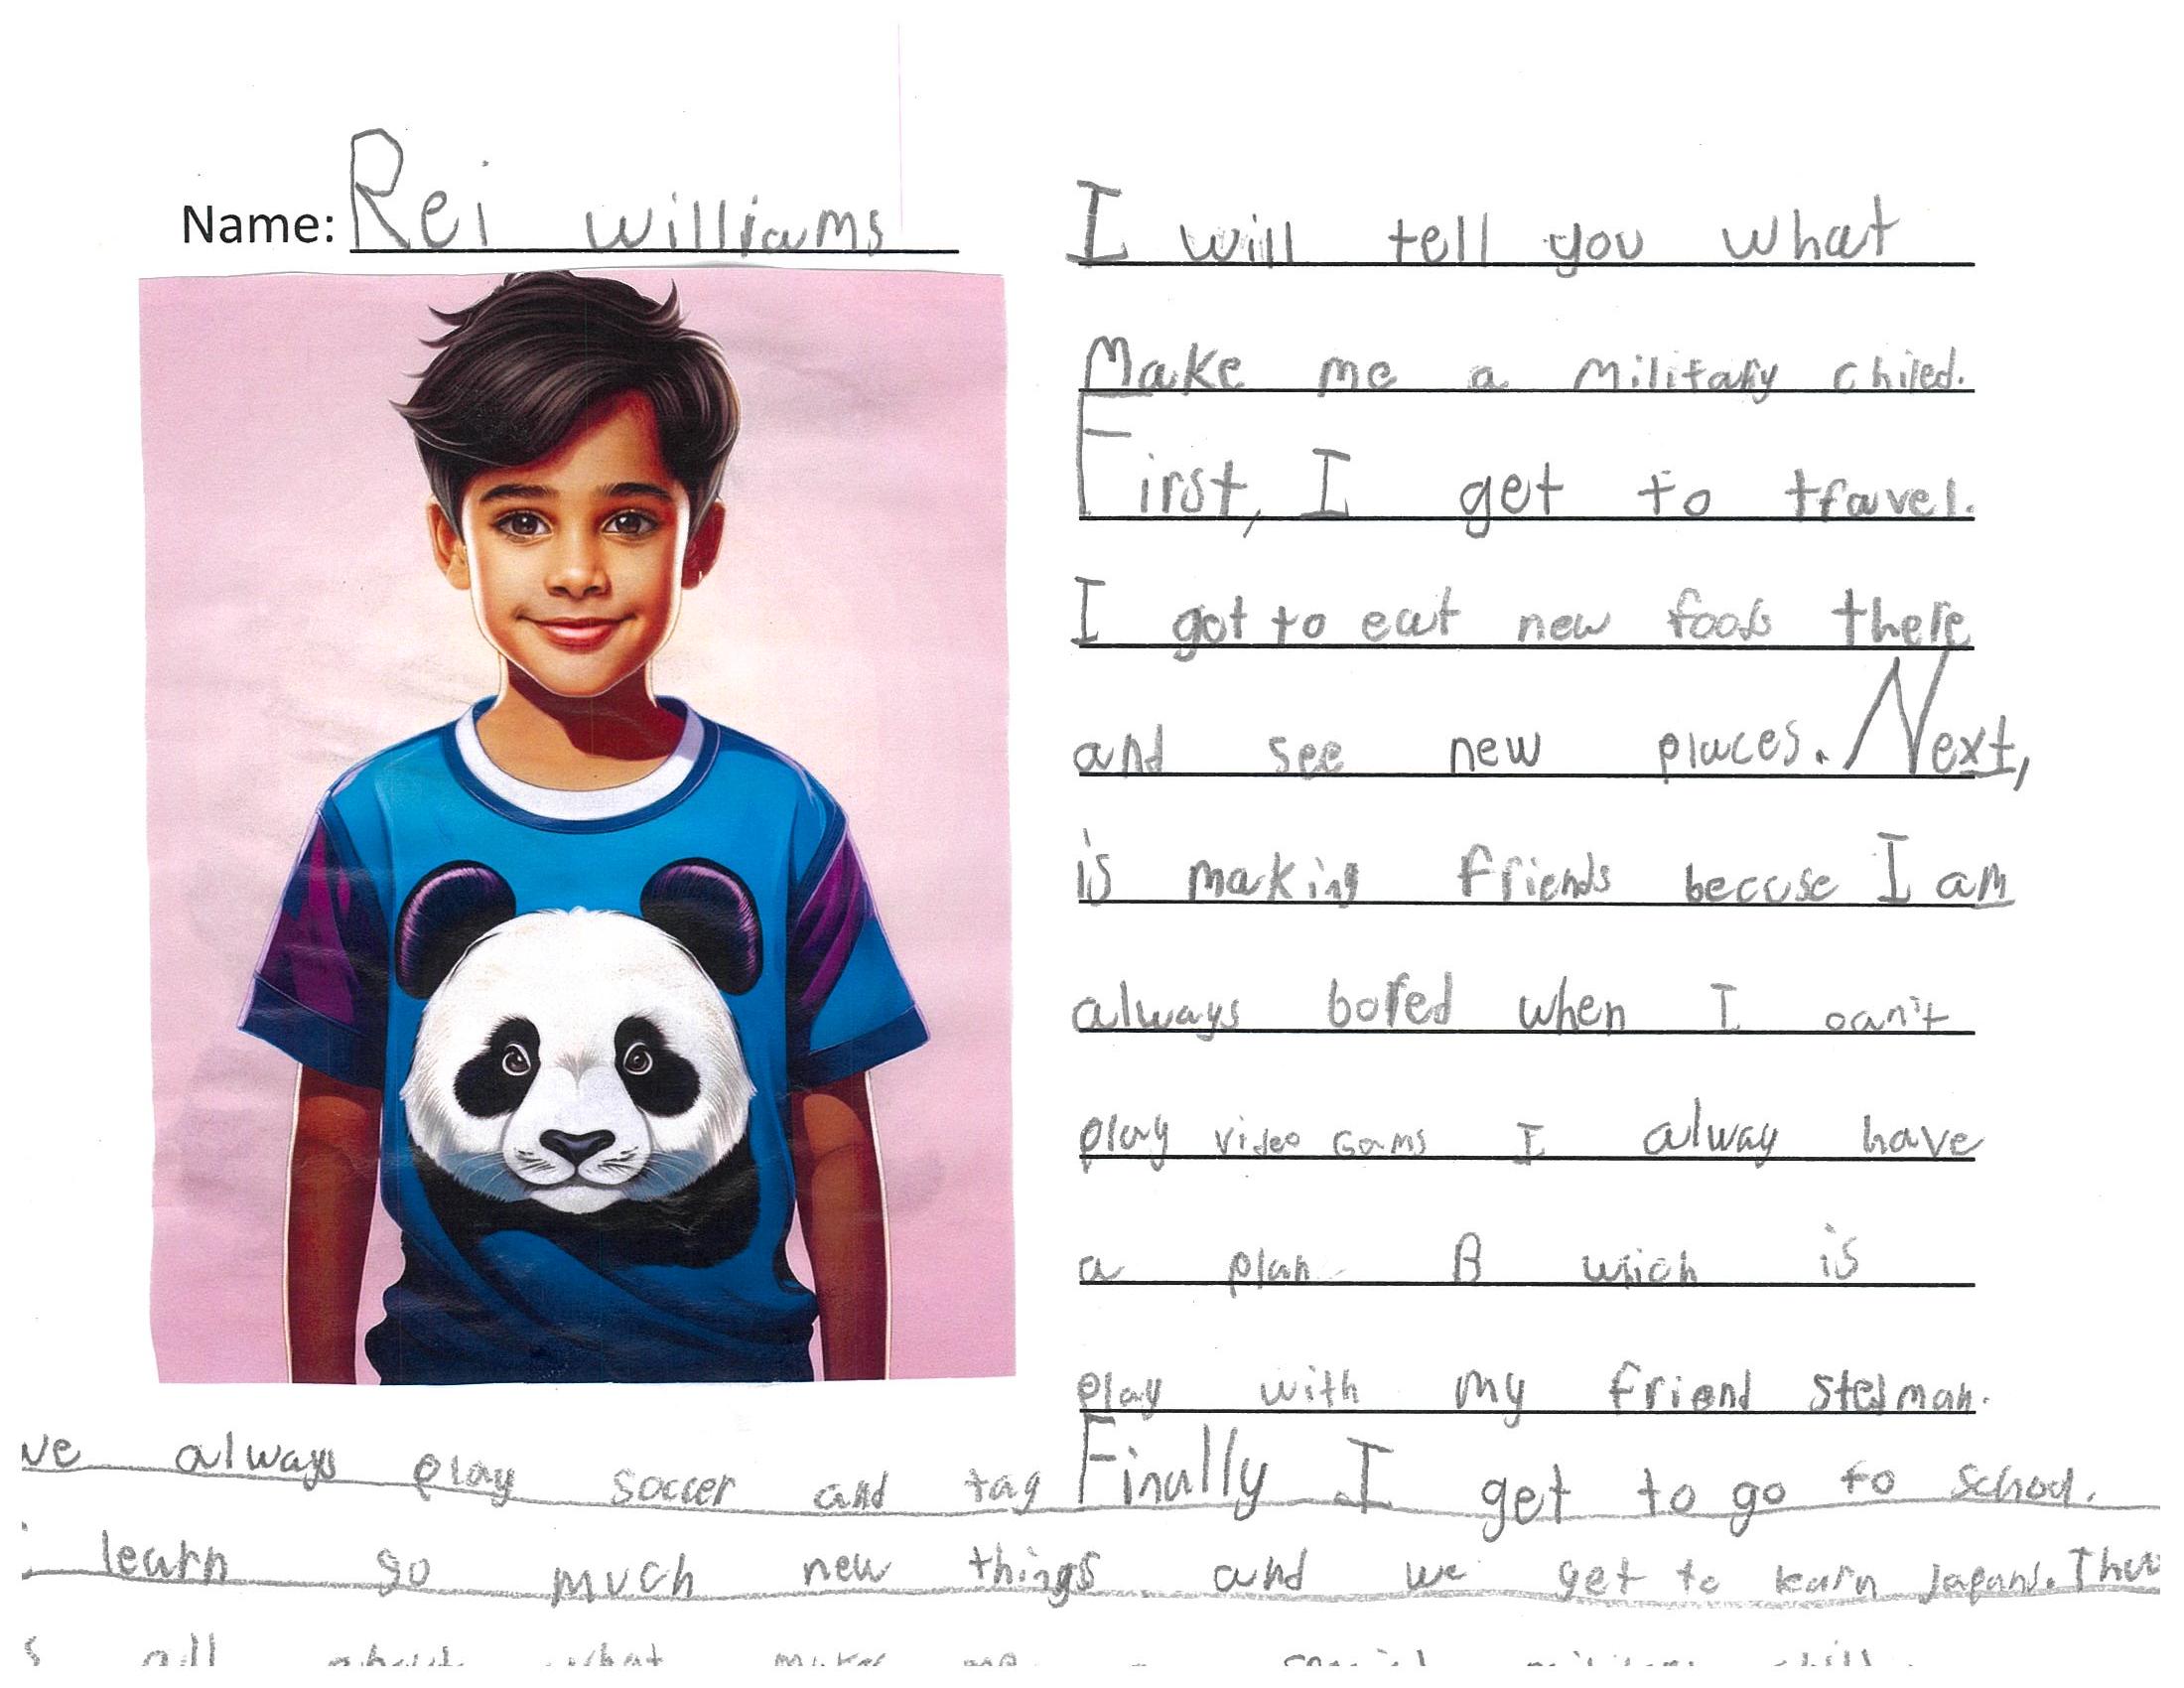 Name: Rei williams
I will tell you what
Make me a Military chiled.
First, I get to travel.
I got to eat new foods there
and see new places. Next,
is making friends becuse I am
always bored when I can't
play video Gams I alway have
a plan B wich is
play with my friend Stedman.
ve always play soccer and tag Finally I get to go to school.
learn so much new things and we get to learn Japans.
all about what makes me special military